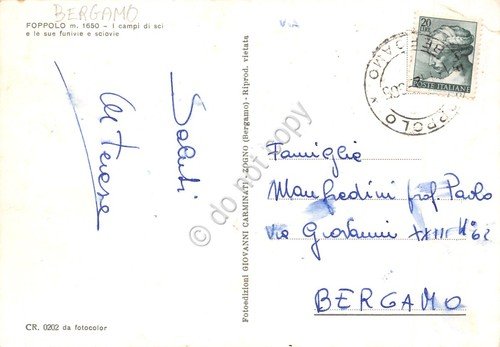 BERGAMO
FOPPOLO m. 1650 - I campi di sci
e le sue funivie e sciovie
VIA
Saluti
Fotoedizioni GIOVANNI CARMINATI - ZOGNO (Bergamo) - Riprod. vietata
do not copy
20
LIRE
POSTE ITALIANE
FOPPOLO
BERGAMO
Famiglia
Manfredini prof. Paolo
Via Giovanni XXIII N° 62
BERGAMO
CR. 0202 da fotocolor